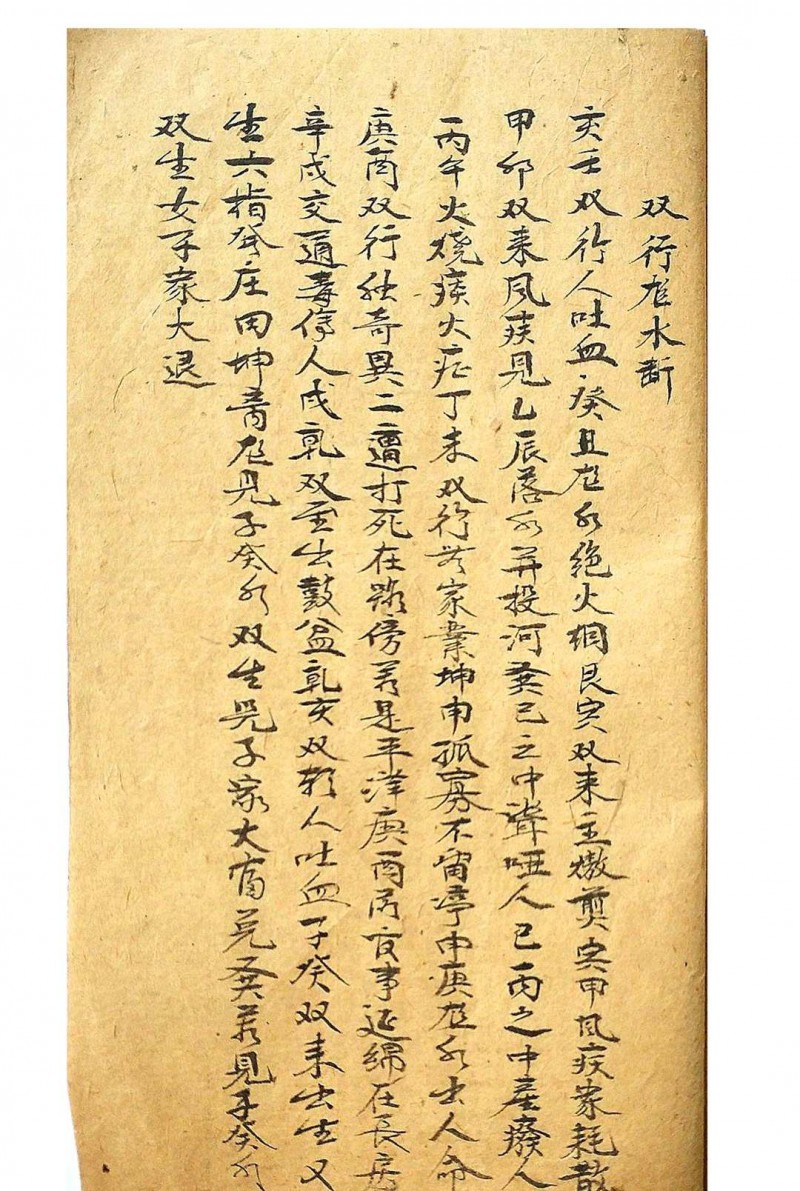 双行龙水断
亥壬双行人吐血癸丑龙水绝火烟艮寅双来主熬煎寅甲风疾家耗散
甲卯双来风疾见乙辰落水并投河巽巳之中聋哑人巳丙之中产痨人
丙午火烧痰火症丁未双行发家业坤申孤寡不甯亭申庚龙水出人命
庚酉双行独奇異二遭打死在路傍若是平洋庚酉丙夜事延绵在長房
辛戌交通毒傷人戌乾双至出鼓盆乾亥双朝人吐血子癸双来出生又
生六指癸庄田坤龙見子癸水双生児子家大富兑巽若見子癸水
双生女子家大退